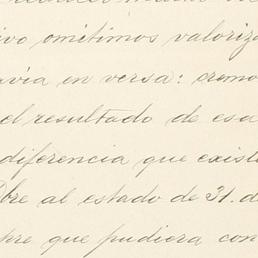 ivo omitimos valoriza
avia en versa: cremo
el resultado de esa
diferencia que existe
bre al estado de 31. d
pre que pudiera con